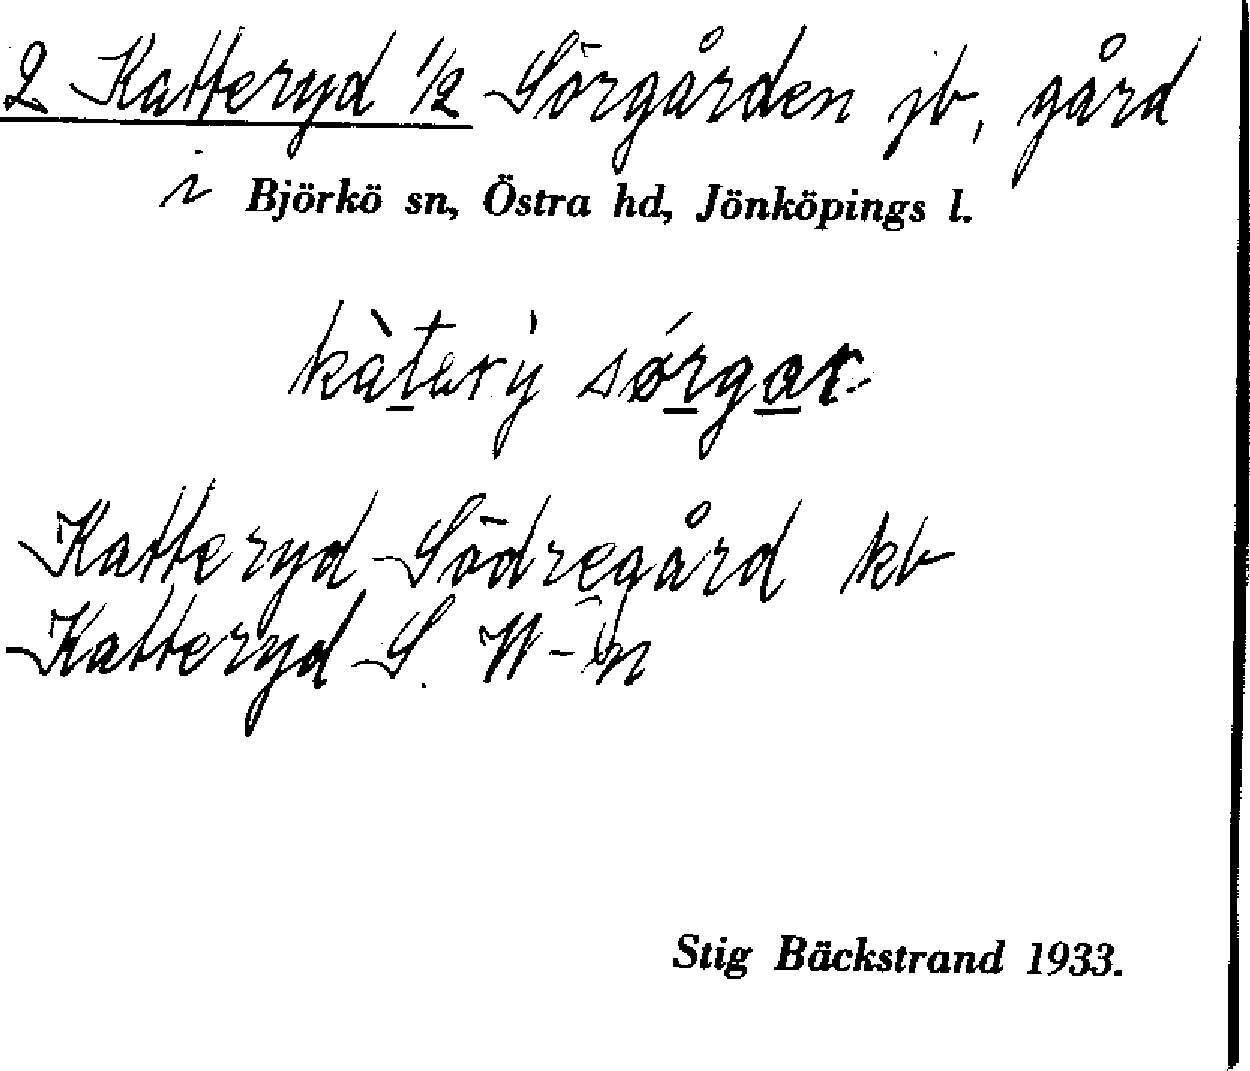 2 Katteryd 1/2 Sörgården jb, gård
i Björkö sn, Östra hd, Jönköpings l.
kàterỳ sǿrgar
Katteryd Södregård kb
Katteryd S.
Stig Bäckstrand 1933.